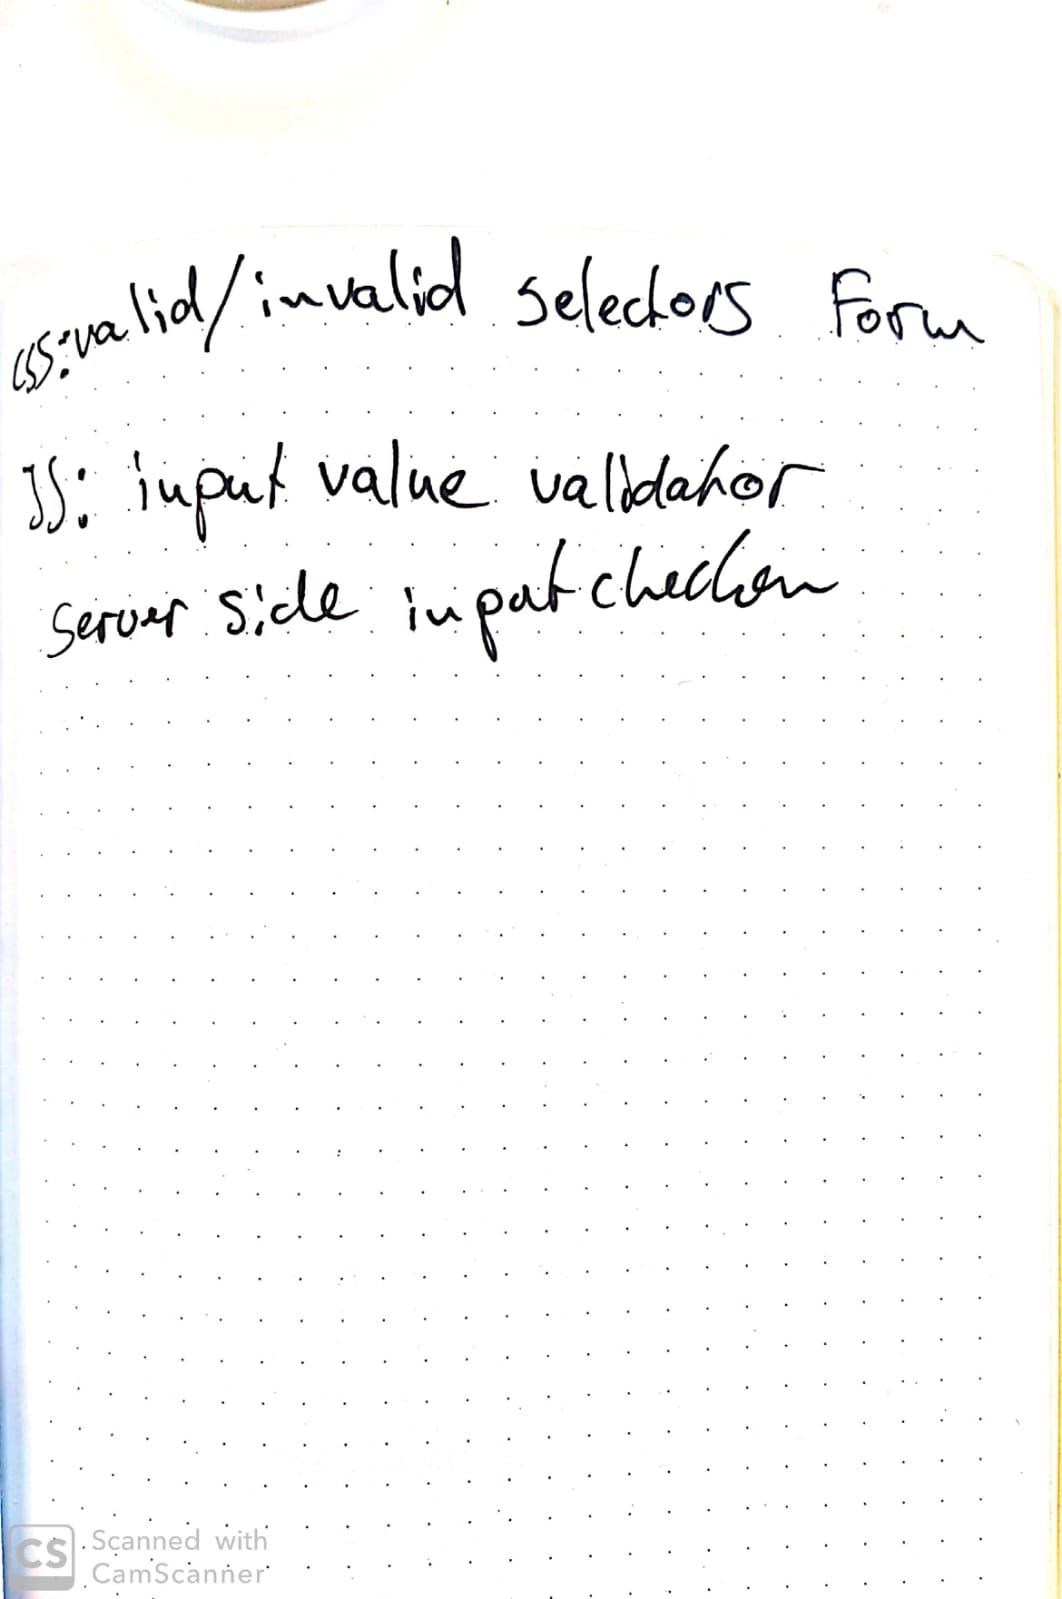 CSS:valid/invalid selectors Form
JS: input value validator
Server side input checken
CS Scanned with
CamScanner